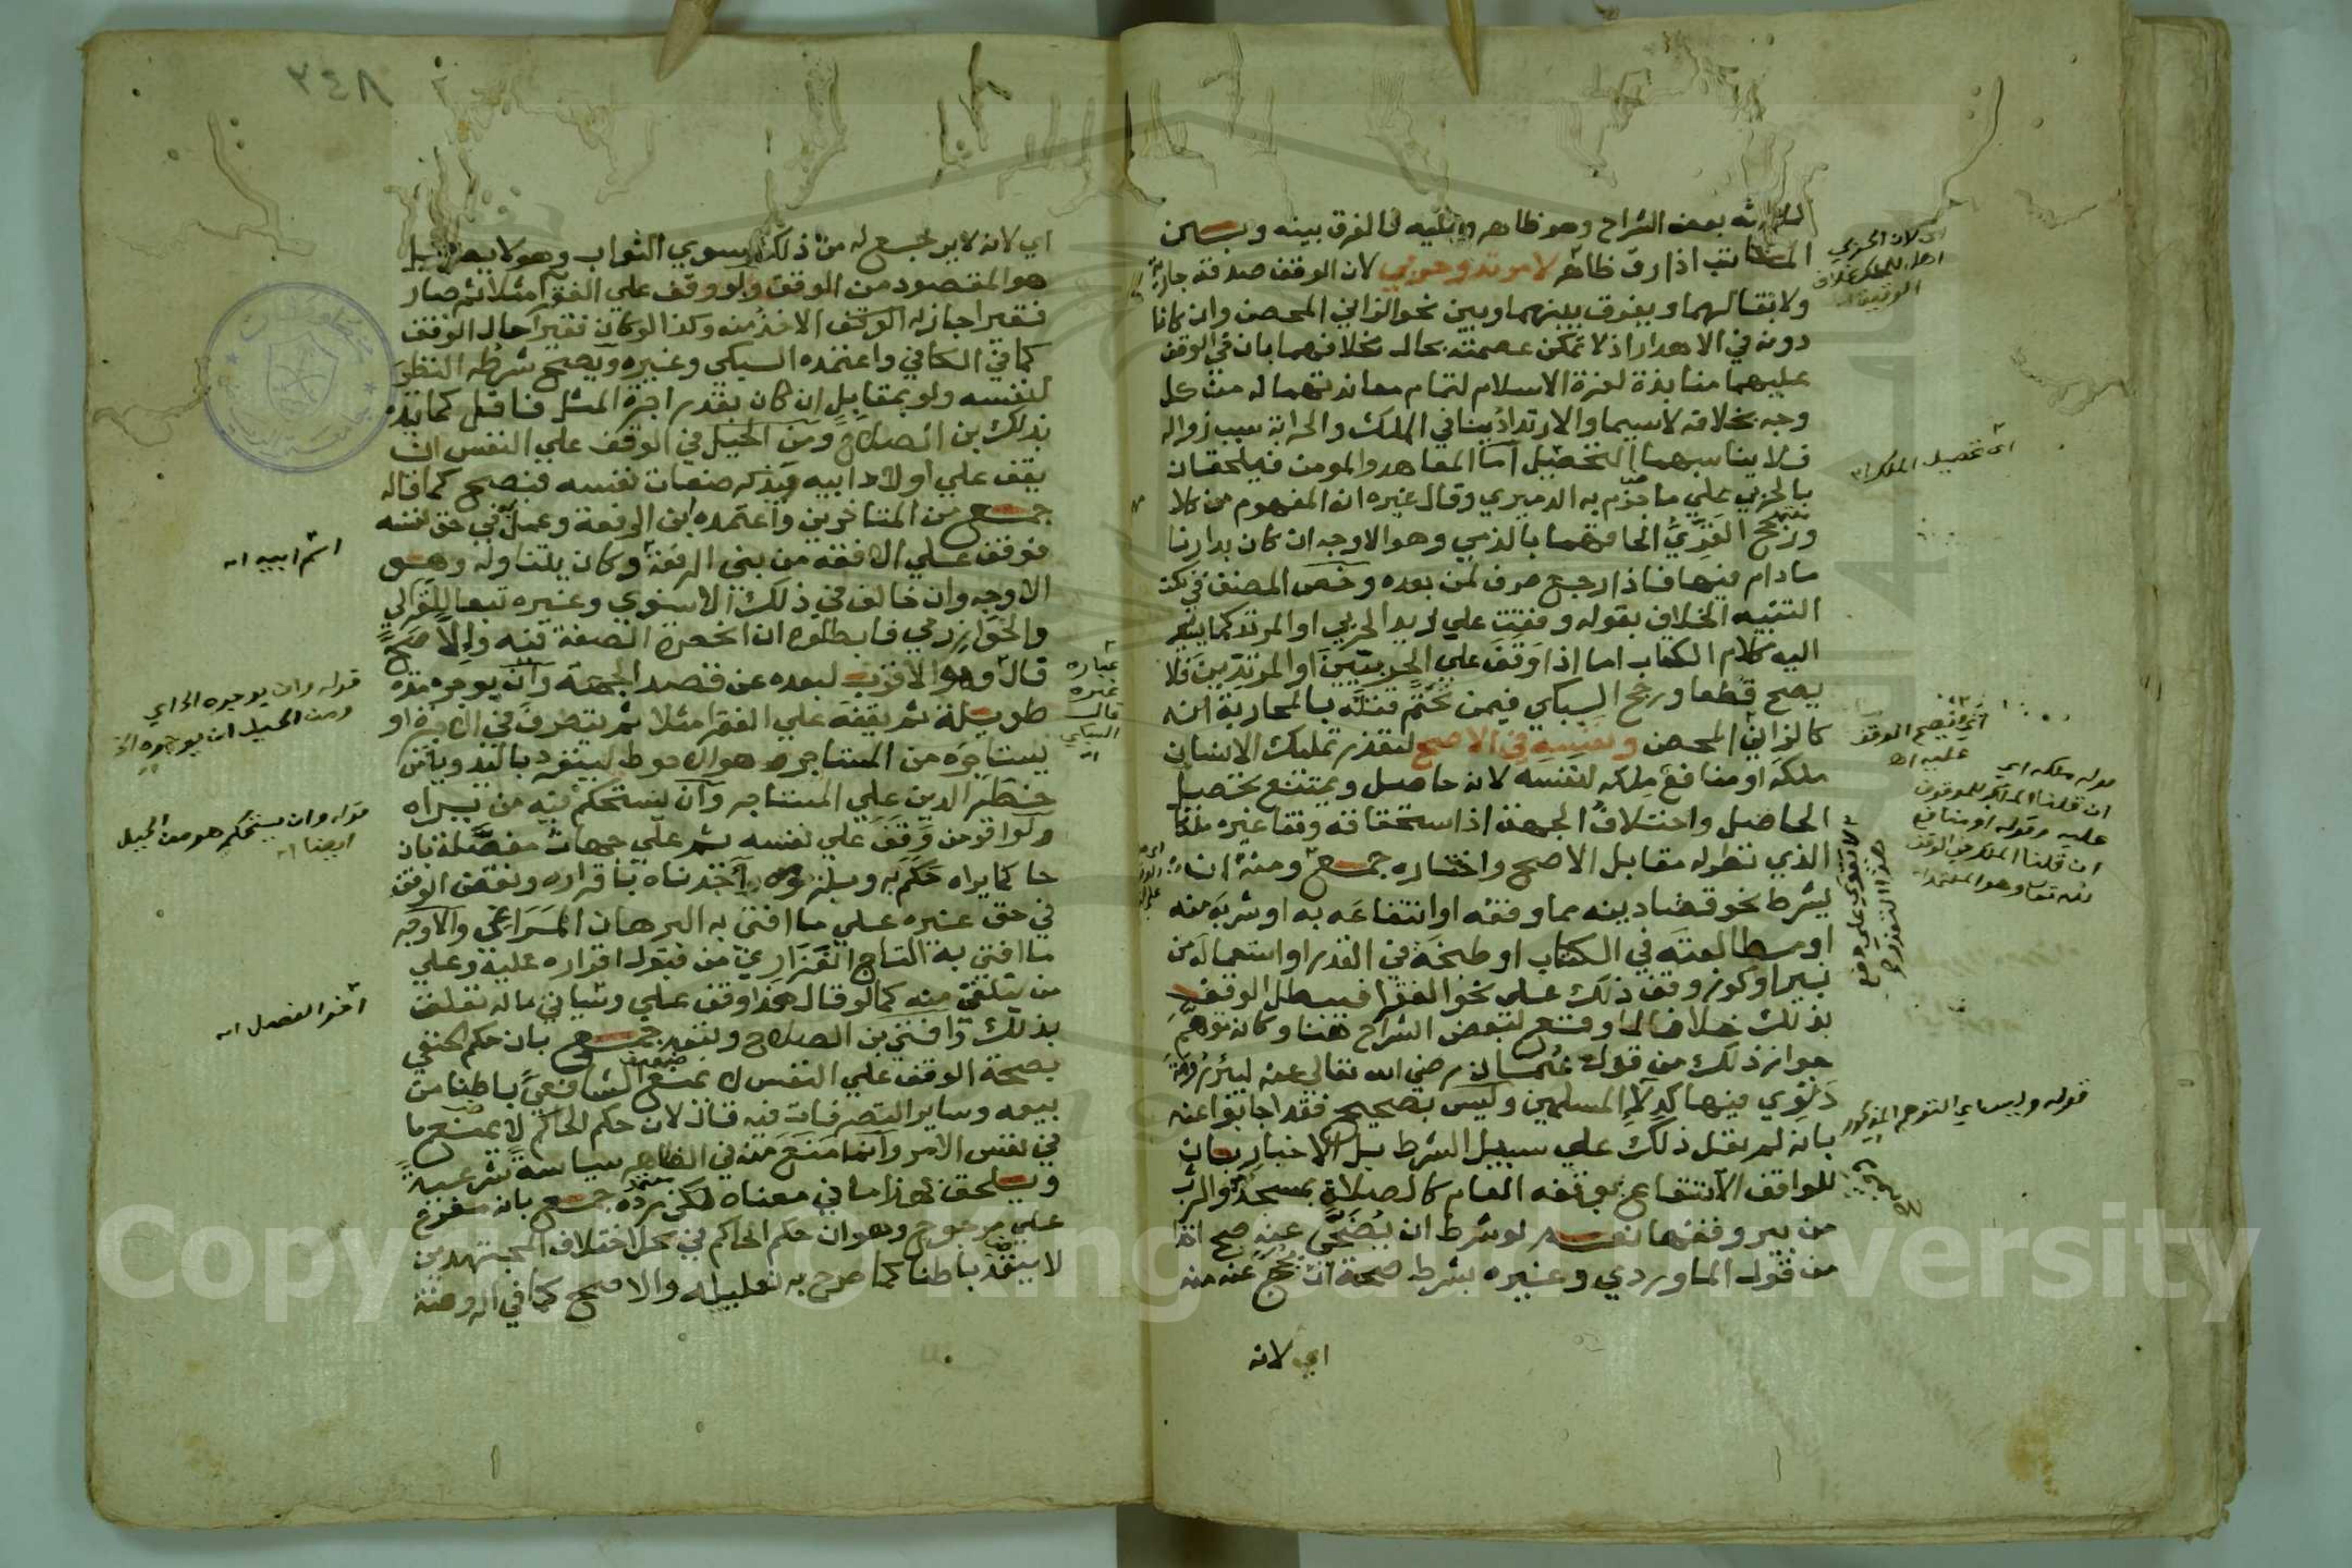 بعض الشراح وهو ظاهر الفرق بينه وبين
المكاتب اذا رق ظاهر لا مرتد وحربي لان الوقف صدقة جارية
ولا بقا لهما ويفرق بينهما وبين نحو الزاني المحصن وان كانا
دونه في الاهدار اذ لا تمكن عصمته بحال بخلافهما بان في الوقف
عليهما منابذة لعزة الاسلام لتمام معاندتهما له من كل
وجه بخلافه لاسيما والارتداد ينافي الملك والحرابة سبب زواله
فلا يناسبهما التحصيل اما المعاهد والمومن فيلحقان
بالحربي علي ما جزم به الدميري وقال غيره ان المفهوم من كلا
ورجح الغزي الحاقهما بالذمي وهو الاوجه ان كان بدارنا
ما دام فيها فاذا رجع صرف لمن بعده وخص المصنف في نكت
التنبيه الخلاف بقوله وقفت علي زيد الحربي او المرتد كما يشير
اليه كلام الكتاب اما اذا وقف علي الحربيين او المرتدين فلا
يصح قطعا ورجح السبكي فيمن تحتم قتله بالمحاربة انه
كالزاني المحصن ونفسه في الاصح لتعذر تمليك الانسان
ملكه او منافع ملكه لنفسه لانه حاصل ويمتنع تحصيل
الحاصل واختلاف الجهة اذ استحقاقه وقفا غيره ملكا
الذي نظر له مقابل الاصح واختاره جمع ومنه ان
يشرط نحو قضا دينه مما وقفه او انتفاعه به او شربه منه
او مطالعته في الكتاب او طبخه في القدر او استعماله من
بير او كوز وقف ذلك علي نحو الفقرا فيبطل الوقف
بذلك خلافا لما وقع لبعض الشراح هنا وكانه توهم
جواز ذلك من قول عثمان رضي الله تعالي عنه لبئر رومة
دلوي فيها كدلا المسلمين وليس بصحيح فقد اجابوا عنه
بانه لم يقل ذلك علي سبيل الشرط بل الاخبار بان
للواقف الانتفاع بوقفه العام كالصلاة بمسجد والشرب
من بير وقفها نعم لو شرط ان يضحي عنه صح اخذا
من قول الماوردي وغيره بشرط صحة ان يحج عنه منه
اي لانه
اي لان الحربي
اي تحصيل الملك اه
اي فيصح الوقف
عليه اه
قوله ملكه اي
ان قلنا الملك للموقوف
عليه وقوله او منافع
ان قلنا الملك في الوقف
لله تعالي وهو المعتمد اه
قوله وليس اي التوهم المذكور
٣٤٨
اي لانه لا يرجع له من ذلك سوي الثواب وهو لا يضر بل
هو المقصود من الوقف ولو وقف علي الفقرا مثلا ثم صار
فقيرا جاز له الاخذ منه وكذا لو كان فقيرا حال الوقف
كما في الكافي واعتمده السبكي وغيره ويصح شرطه النظر
لنفسه ولو بمقابل ان كان بقدر اجرة المثل فاقل كما قيده
بذلك بن الصلاح ومن الحيل في الوقف علي النفس ان
يقف علي اولاد ابيه ويذكر صفات نفسه فيصح كما قاله
جمع من المتاخرين واعتمده ابن الرفعة وعمل به في حق نفسه
فوقف علي الافقه من بني الرفعة وكان يتناوله وهو
الاوجه وان خالف في ذلك الاسنوي وغيره تبعا للغزالي
والخوارزمي فابطلوه ان انحصرة الصفة فيه والا صح
قال وهو الاقرب لبعده عن قصد الجهة وان يوجره مدة
طويلة ثم يقفه علي الفقرا مثلا ثم يتصرف في الاجرة او
يستاجره من المستاجر وهو الاحوط لينفرد باليد ويامن
خطر الدين علي المستاجر وان يستحكم فيه من يراه
ولو اقر من وقف علي نفسه ثم علي جهات مفصلة بان
حاكما يراه حكم به وبلزومه واخذناه باقراره ونقض الوقف
في حق غيره علي ما افتي به البرهان المراغي والاوجه
ما افتي به التاج الفزاري من قبول اقراره عليه وعلي
من يتلقي منه كما لو قال هذا وقف علي وسياتي ما له تعلق
بذلك وافتي بن الصلاح وتبعه جمع بان حكم الحنفي
بصحة الوقف علي النفس لا يمنع الشافعي باطنا من
بيعه وساير التصرفات فيه قال لان حكم الحاكم لا يمنع ما
في نفس الامر وانما منع منه في الظاهر سياسة شرعية
ويلحق بهذا ما في معناه لكن رده جمع بانه مفرع
علي مرجوح وهو ان حكم الحاكم في محل اختلاف المجتهدين
لا ينفذ باطنا كما صرح به تعليله والاصح كما في الروضة
اسم ابيه اه
عبارة
غيره
قال
السبكي
اه
قوله وان يوجره الخ اي
ومن الحيل ان يوجره الخ
قوله وان يستحكم هو من الحيل
ايضا اه
Copyright © King Saud University